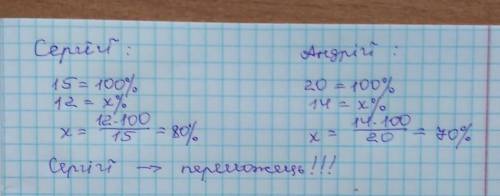 Сергій : Андрій :
15 = 100% 20 = 100%
12 = x% 14 = x%
x = 12·100/15 = 80% x = 14·100/20 = 70%
Сергій → переможець!!!